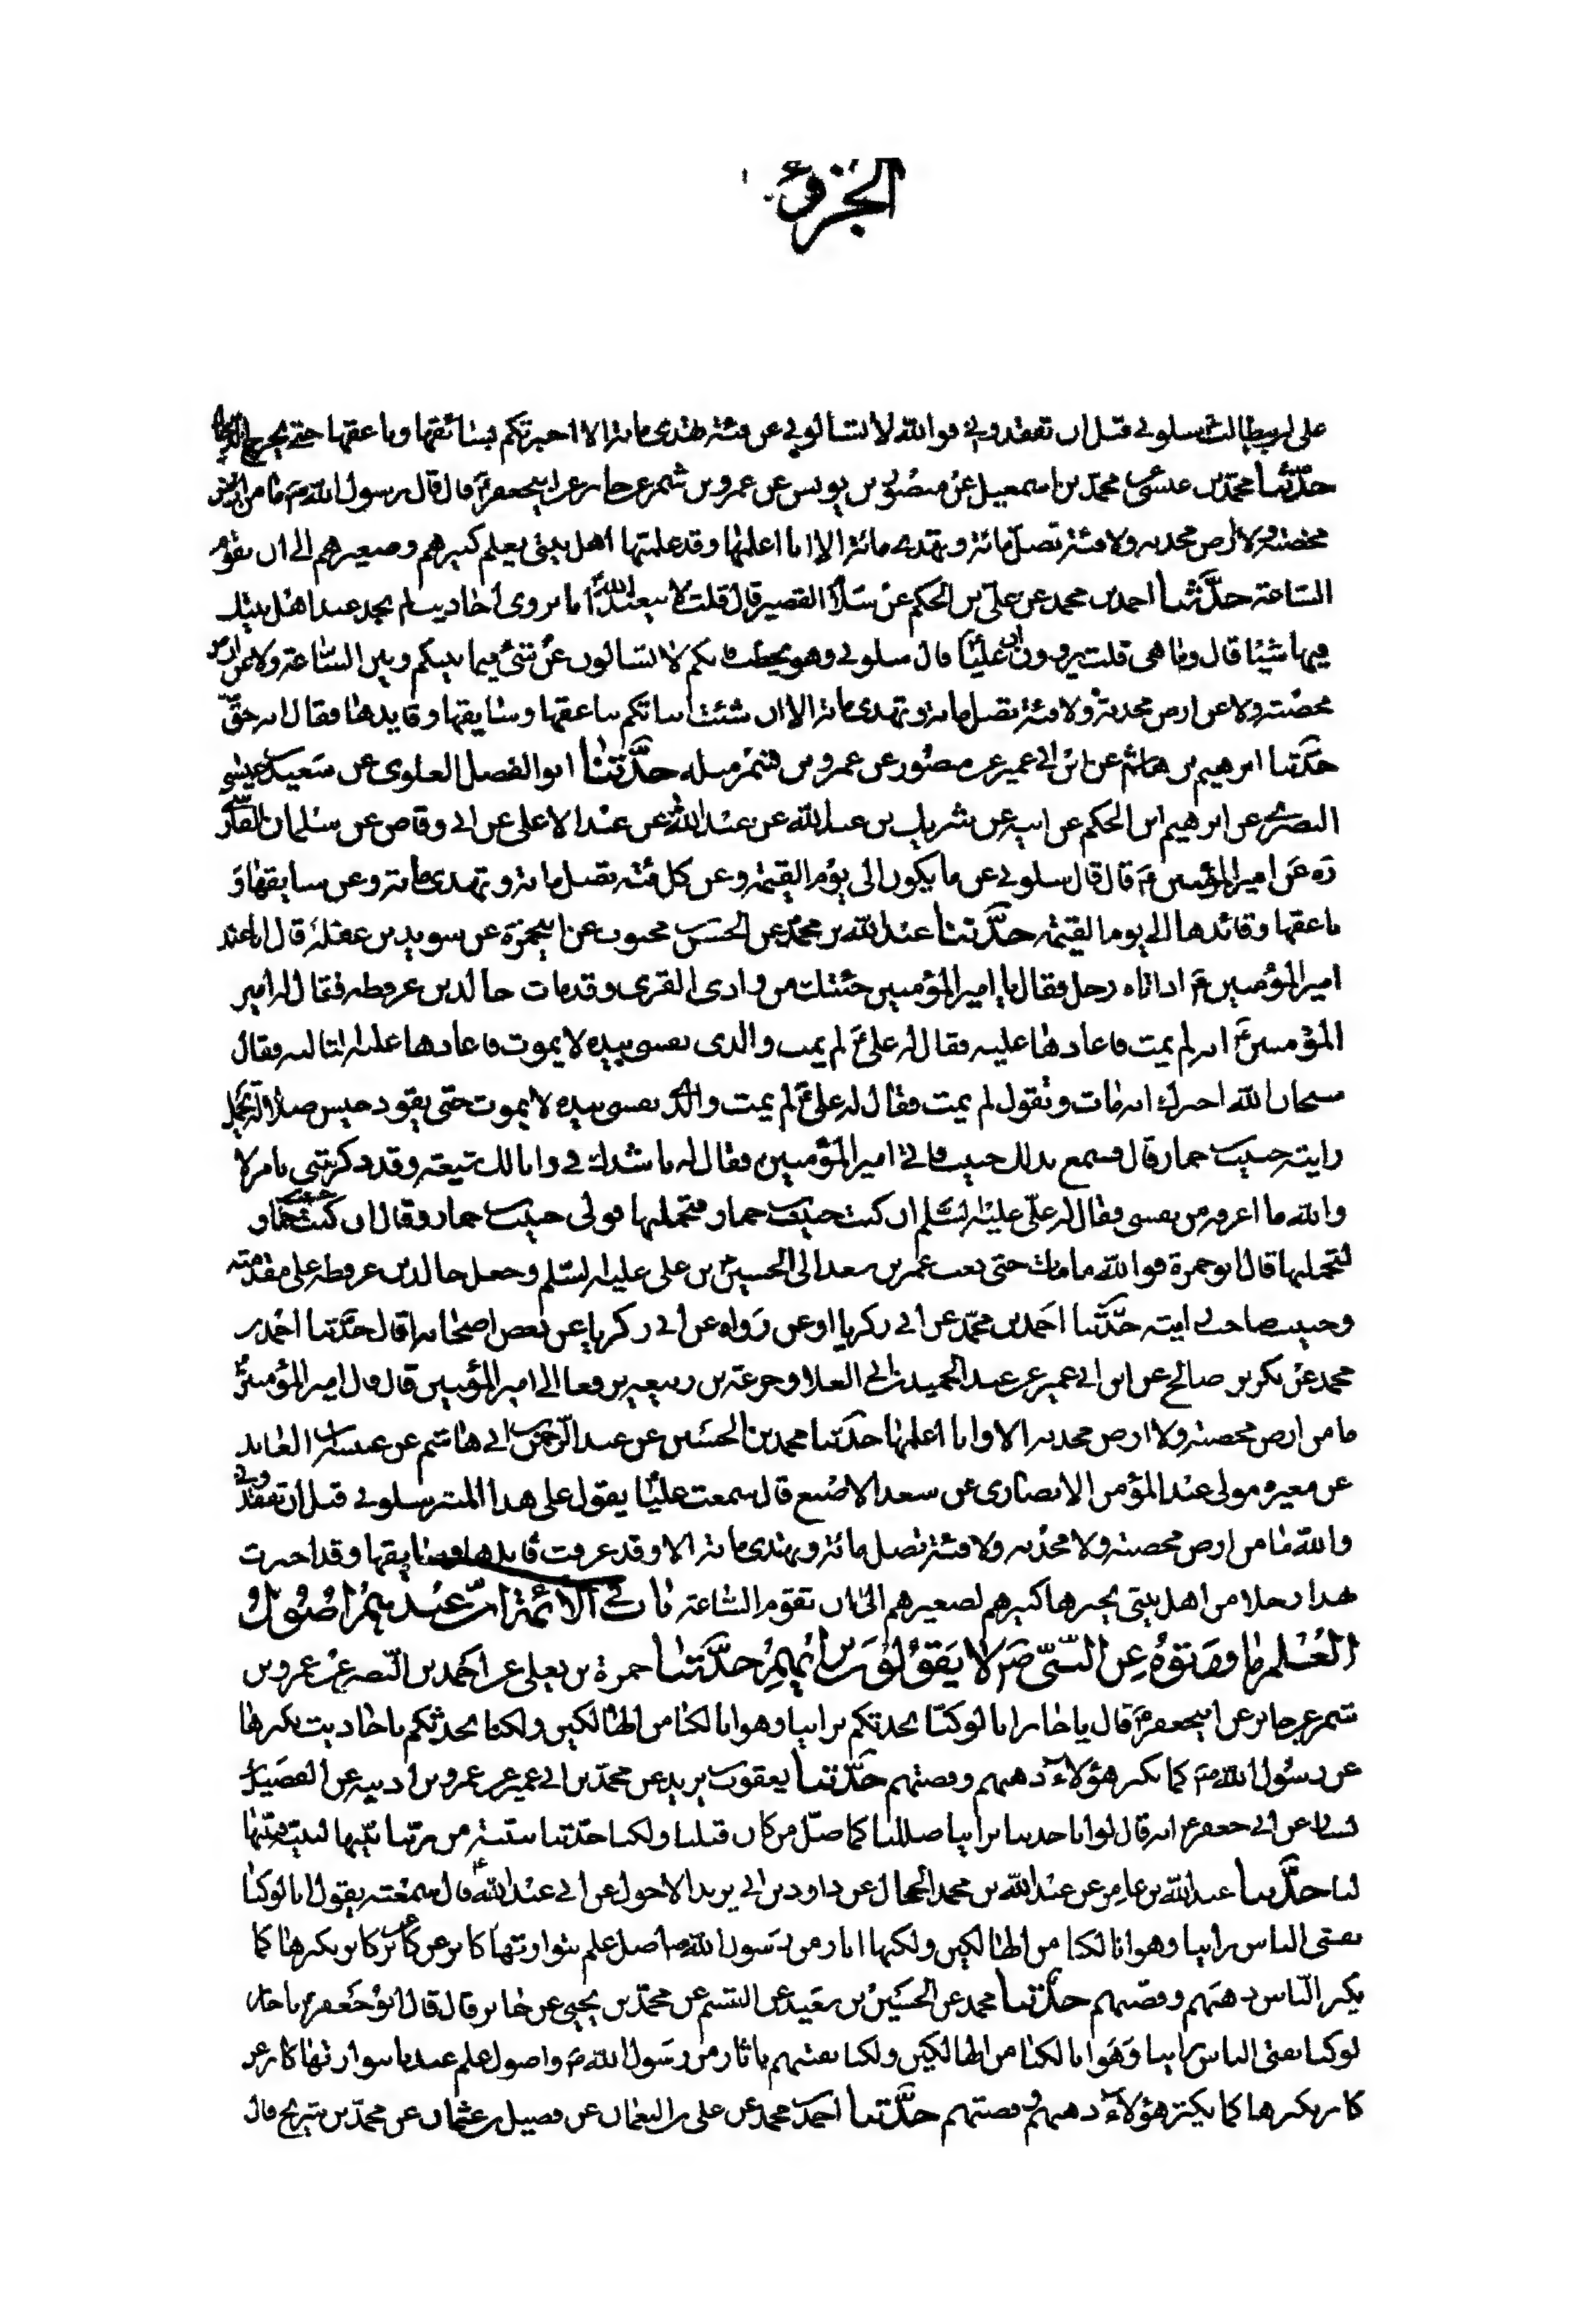 الجزؤ
على بن ابيطالب سلونى قبل ان تفقدونى فوالله لا تسالونى عن فئة تهدى مائة الا اخبرتكم بسائقها وناعقها حتى يخرج الدجال
حدّثنا محمّد بن عيسى عن محمّد بن اسمعيل عن منصور بن يونس عن عمرو بن شمر عن جابر عن ابيجعفر ع قال قال رسول الله ص ما من ارض
مخصبة ولا ارض مجدبه ولا فئة تضلّ مائة وتهدى مائة الا انا اعلمها وقد علمتها اهل بيتى يعلم كبيرهم وصغيرهم الى ان تقوم
الساعة حدّثنا احمد بن محمد عن علىّ بن الحكم عن القصير قال قلت لابيعبدالله ع انا نروى احاديث لم نجد عند اهل بيتك
فيها شيئا قال وما هى قلت يروون ان عليّا قال سلونى وهو يخطب فانكم لا تسالون عن شئ فيما بينكم وبين الساعة ولا عن ارض
مخصبة ولا عن ارض مجدبة ولا فئة تضل مائة وتهدى مائة الا ان شئت انباتكم بناعقها وسايقها وقايدها فقال انه حقّ
حدّثنا ابرهيم بن هاشم عن ابن ابى عمير عن منصور عن عمرو بن شمر مثله حدّثنا ابو الفضل العلوى عن سعيد بن عيسى
البصرى عن ابرهيم ابن الحكم عن ابيه عن شريك بن عبدالله عن عبد الاعلى عن ابى وقاص عن سلمان الفارسى
ره عن امير المؤمنين ع قال قال سلونى عن ما يكون الى يوم القيمة وعن كل فئة تضل مائة وتهدى مائة وعن سايقها و
ناعقها وقائدها الى يوم القيمة حدّثنا عبدالله بن محمّد عن الحسن بن محبوب عن ابيحمزة عن سويد بن غفلة قال انا عند
امير المؤمنين ع اذ اتاه رجل فقال يا امير المؤمنين جئتك من وادى القرى وقد مات خالد بن عرفطه فقال له امير
المؤمنين ع انه لم يمت فاعادها عليه فقال له على ع لم يمت والذى نفسى بيده لا يموت فاعادها عليه الثالثه فقال
سبحان الله اخبرك انه مات وتقول لم يمت فقال له على ع لم يمت والذى نفسى بيده لا يموت حتى يقود جيش ضلالة يحمل
رايته حبيب بن جمار قال فسمع بذلك حبيب فاتى امير المؤمنين فقال له ناشدك فى وانا لك شيعه وقد ذكرتنى بامر لا
والله ما اعرفه من نفسى فقال له علىّ عليه السّلم ان كنت حبيب بن جمار فتحملها فولى حبيب بن جمار وقال ان كنت حبيب بن جمار
لتحملنها قال ابو حمزة فوالله ما مات حتى بعث عمر بن سعد الى الحسين ع بن على عليه السّلم وجعل خالد بن عرفطه على مقدمته
وحبيب صاحب رايته حدّثنا احمد بن محمّد عن ابى زكريا او عن رواه عن ابى زكريا عن بعض اصحابنا قال حدّثنا احمد بن
محمد عن بكر بن صالح عن ابن ابى عمير عن عبد الحميد بن ابى العلا وجرعة بن ربيعه يرفعا الى امير المؤمنين قال قال امير المؤمنين
ما من ارض مخصبة ولا ارض مجدبه الا وانا اعلمها حدّثنا محمد بن الحسين عن عبد الرّحمن بن ابى هاشم عن عنبسة العابد
عن مغيره مولى عبد المؤمن الانصارى عن سعد الاصبغ قال سمعت عليّا يقول على هذا المنبر سلونى قبل ان تفقدونى
والله ما من ارض مخصبة ولا مجدبه ولا فئة تضل مائة وتهدى مائة الا وقد عرفت قايدها وسايقها وقد اخبرت
هذا رجلا من اهل بيتى يخبرها كبيرهم لصغيرهم الى ان تقوم الساعة باب فى الائمة انّ عندهم اصول
العلم ما ورثوه عن النّبىّ ص لا يقولون برايهم حدّثنا حمزة بن يعلى عن احمد بن النّضر عن عمرو بن
شمر عن جابر عن ابيجعفر ع قال يا جابر انا لو كنّا نحدثكم براينا وهوانا لكنا من الهالكين ولكنا نحدثكم باحاديث نكنزها
عن رسول الله ص كما يكنز هؤلاء ذهبهم وفضتهم حدّثنا يعقوب بن يزيد عن محمّد بن ابى عمير عن عمرو بن اذينه عن الفضيل بن
يسار عن ابى جعفر ع انه قال لو انا حدثنا براينا ضللنا كما ضلّ من كان قبلنا ولكنا حدّثنا ببيّنة من ربّنا بيّنها لنبيّه فبيّنها
لنا حدّثنا عبدالله بن عامر عن عبدالله بن محمد الحجال عن داود بن ابى يزيد الاحول عن ابى عبدالله ع قال سمعته يقول انا لو كنّا
نفتى الناس براينا وهوانا لكنا من الهالكين ولكنها اثار من رسول الله ص اصل علم نتوارثها كابر عن كابر نكنزها كما
يكنز النّاس ذهبهم وفضّتهم حدّثنا محمد عن الحسين بن سعيد عن القسم عن محمّد بن يحيى عن جابر قال قال ابو جعفر ع يا جابر
لو كنا نفتى الناس براينا وهوانا لكنّا من الهالكين ولكنا نفتيهم باثار من رسول الله ص واصول علم عندنا نتوارثها كابر عن
كابر نكنزها كما يكنز هؤلاء ذهبهم وفضتهم حدّثنا احمد بن محمد عن على بن النعمان عن فضيل بن عثمان عن محمّد بن شريح قال